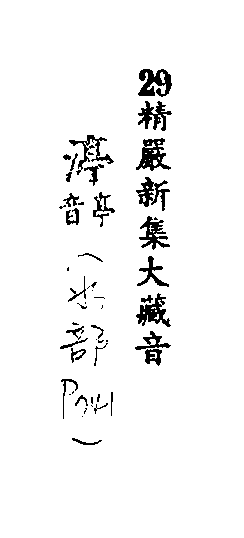 29精嚴新集大藏音
渟
音亭
（水部
P041）